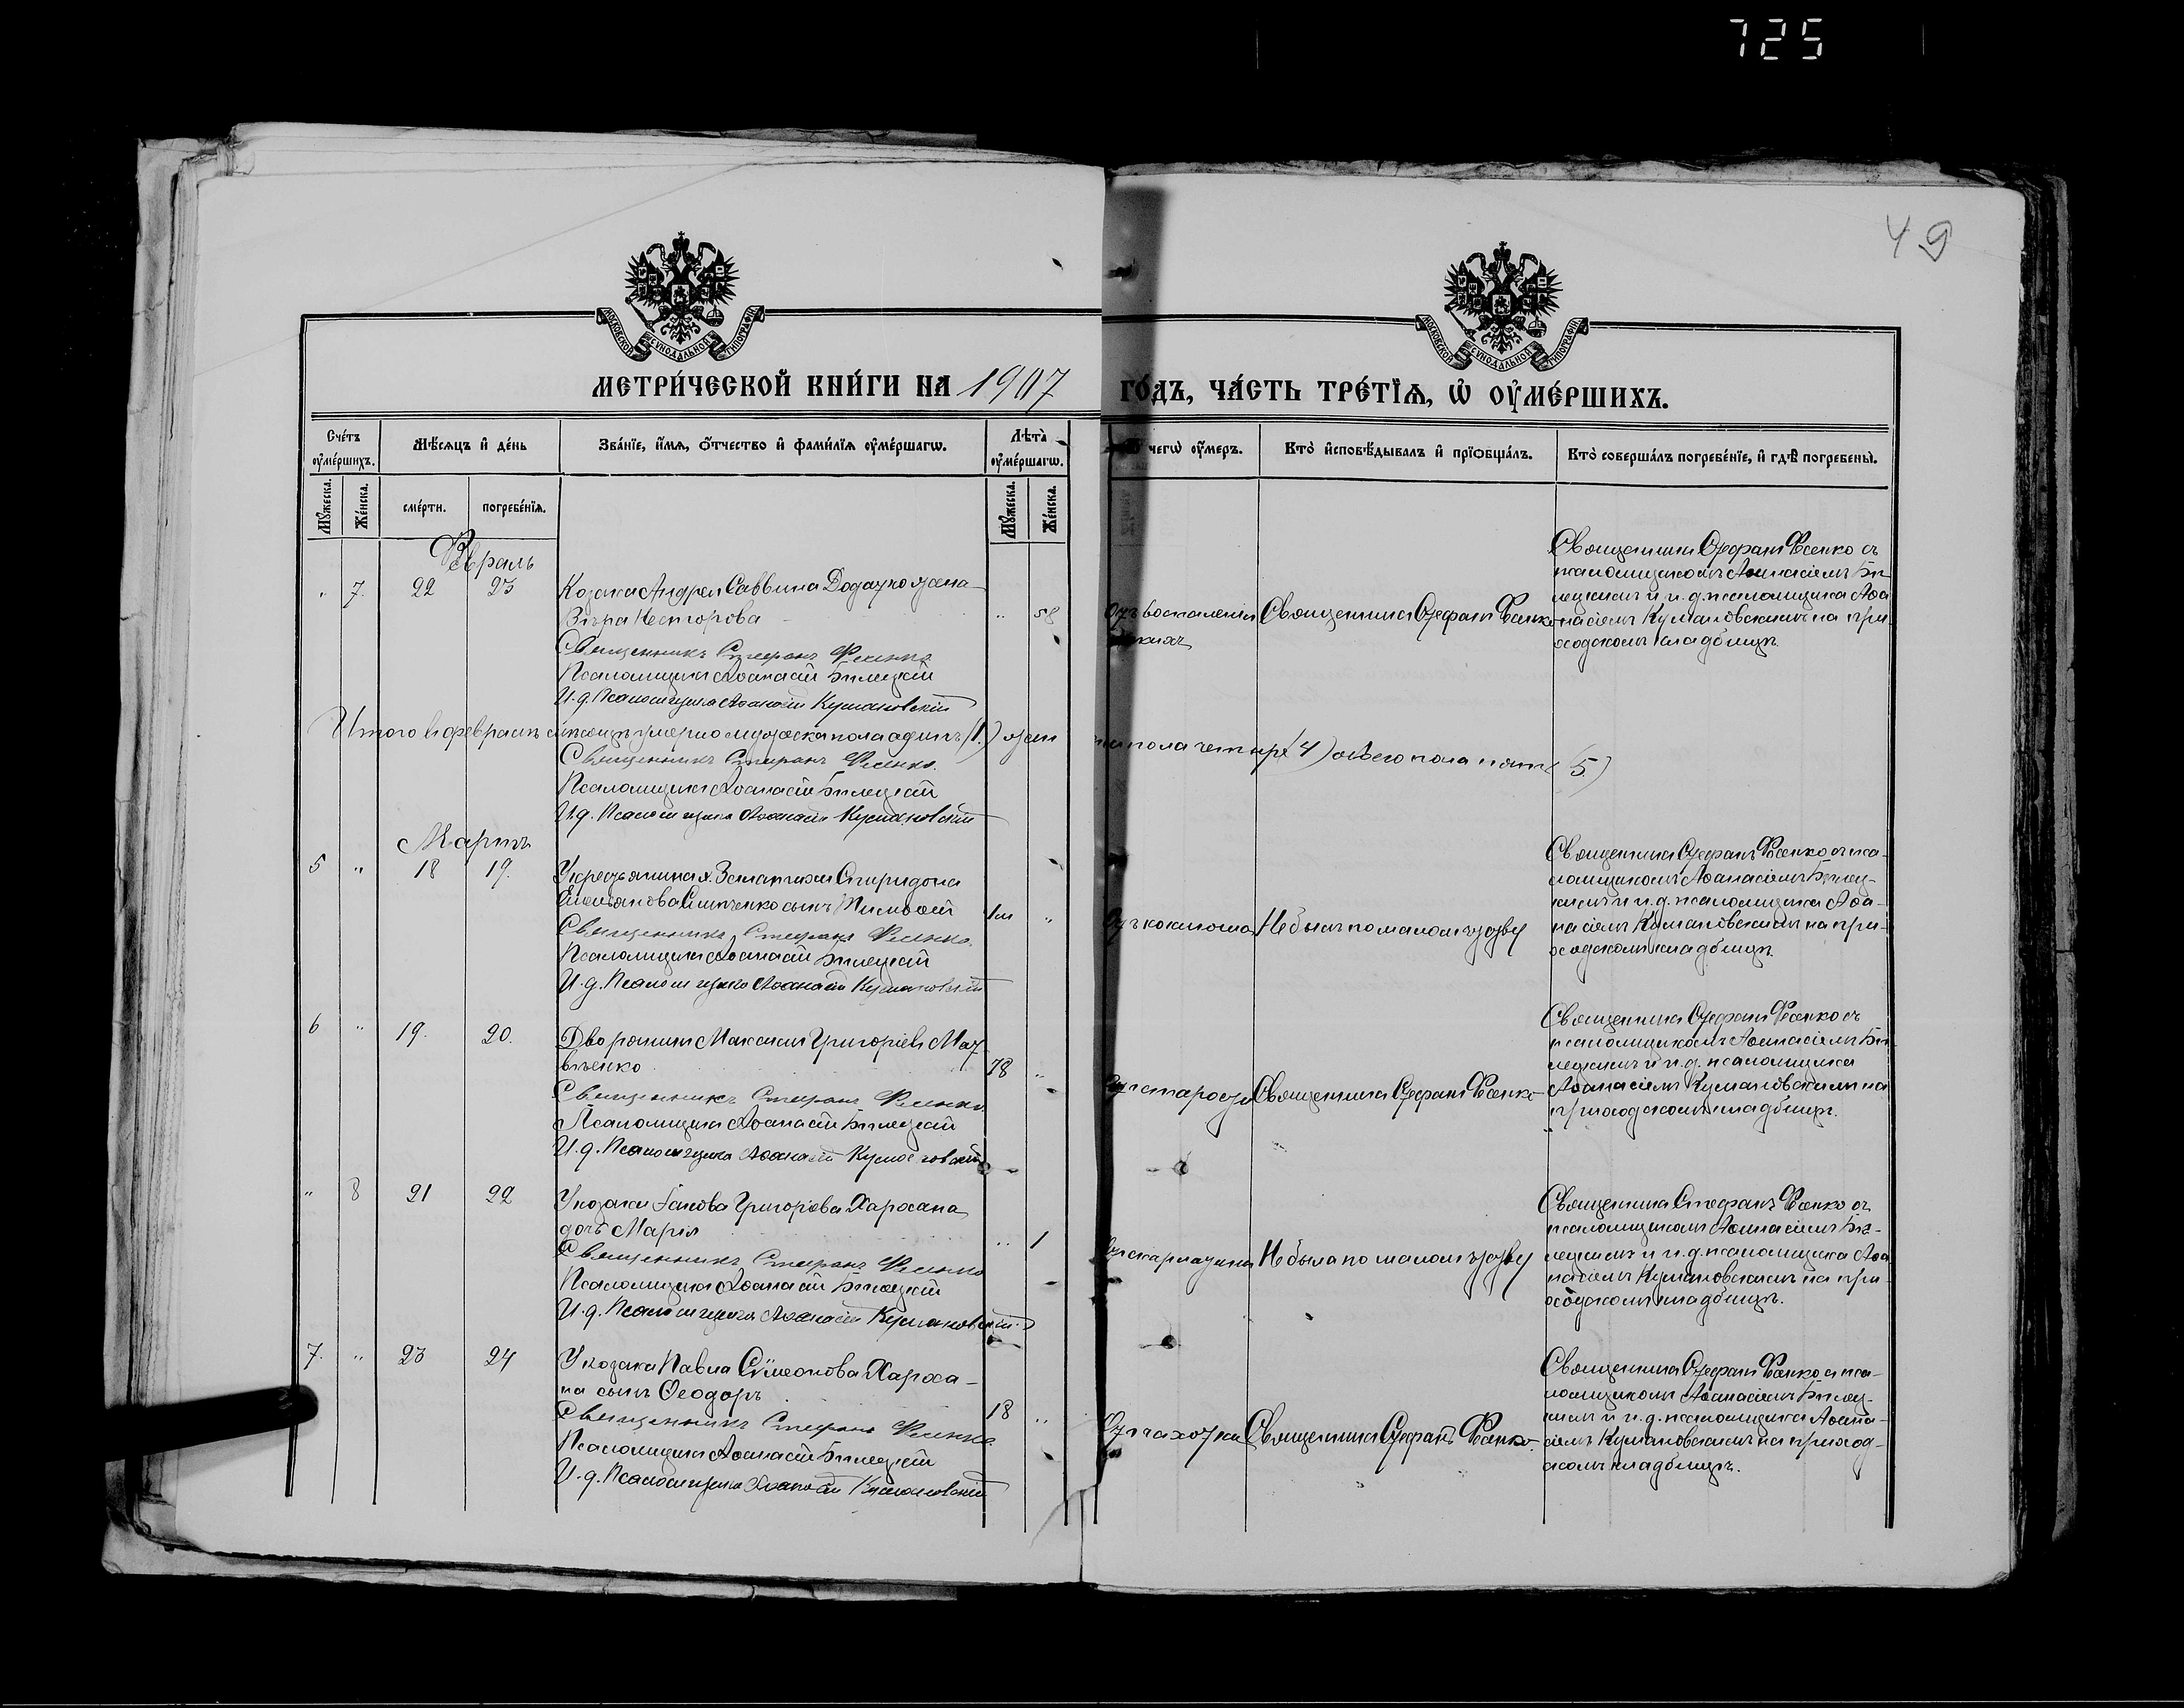 725
49
МОСКОВСКОЙ СѴНОДАЛЬНОЙ ТИПОГРАФІИ
МОСКОВСКОЙ СѴНОДАЛЬНОЙ ТИПОГРАФІИ
МЕТРИ́ЧЕСКОЙ КНИ́ГИ НА 1907 ГО́ДЪ, ЧА́СТЬ ТРЕ́ТЇѦ, Ѡ҆ ОУ҆МЕ́РШИХЪ.
Сче́тъ оу҆ме́ршихъ.
Мꙋ́жеска.
Же́нска.
Мѣ́сѧцъ и҆ де́нь
сме́рти.
погребе́нїѧ.
Зва́нїе, и҆́мѧ, ѻ҆́тчество и҆ фами́лїѧ оу҆ме́ршагѡ.
Лѣ́та оу҆ме́ршагѡ.
Мꙋ́жеска.
Же́нска.
чегѡ̀ оу҆́меръ.
Кто̀ и҆сповѣ́дывалъ и҆ прїѡбща́лъ.
Кто̀ соверша́лъ погребе́нїе, и҆ гдѣ̀ погребены̀.
Февраль
" 7. 22 23
Козака Андрея Саввина Додатко жена
Вѣра Несторова
" 58
Священникъ Стефанъ Фесенко
Псаломщикъ Аѳанасій Билецкій
И. д. Псаломщика Аѳанасій Кумановскій
Отъ воспаленія
Священникъ Стефанъ Фесенко
Священникъ Стефанъ Фесенко съ
псаломщикомъ Аѳанасіемъ Би-
лецкимъ и и. д. псаломщика Аѳа
насіемъ Кумановскимъ на при-
ходскомъ кладбищѣ.
Итого въ февралѣ мѣсяцѣ умерло мужеска пола одинъ (1.) жен
ска пола четыре (4) обоего пола пять (5)
Священникъ Стефанъ Фесенко.
Псаломщикъ Аѳанасій Билецкій
И. д. Псаломщика Аѳанасій Кумановскій
Мартъ
5 " 18 19.
У крестьянина х.
Спиридона
сынъ Тимоѳей
1м "
Священникъ Стефанъ Фесенко.
Псаломщикъ Аѳанасій Билецкій
И. д. Псаломщика Аѳанасій Кумановскій
Отъ коклюша
Не былъ по малолѣтству
Священникъ Стефанъ Фесенко съ пса-
ломщикомъ Аѳанасіемъ Билец-
кимъ и и. д. псаломщика Аѳа-
насіемъ Кумановскимъ на при-
ходскомъ кладбищѣ.
6 " 19. 20.
Дворянинъ Максимъ Григоріевъ Мат
вѣенко
78 "
Священникъ Стефанъ Фесенко.
Псаломщикъ Аѳанасій Билецкій
И. д. Псаломщика Аѳанасій Кумановскій
Отъ старости
Священникъ Стефанъ Фесенко
Священникъ Стефанъ Фесенко съ
псаломщикомъ Аѳанасіемъ Би
лецкимъ и и. д. псаломщика
Аѳанасіемъ Кумановскимъ на
приходскомъ кладбищѣ.
" 8 21 22
У козака Іакова Григоріева Харохана
дочь Марія
" 1
Священникъ Стефанъ Фесенко
Псаломщикъ Аѳанасій Билецкій
И. д. Псаломщика Аѳанасій Кумановскій
Отъ скарлатины
Не была по малолѣтству
Священникъ Стефанъ Фесенко съ
псаломщикомъ Аѳанасіемъ Би-
лецкимъ и и. д. псаломщика Аѳа
насіемъ Кумановскимъ на при
ходскомъ кладбищѣ.
7. " 23 24
У козака Павла Сѵмеонова Хароха-
на сынъ Ѳеодоръ
18 "
Священникъ Стефанъ Фесенко
Псаломщикъ Аѳанасій Билецкій
И. д. Псаломщика Аѳанасій Кумановскій
Отъ чахотки
Священникъ Стефанъ Фесенко.
Священникъ Стефанъ Фесенко съ пса-
ломщикомъ Аѳанасіемъ Билец-
кимъ и и. д. псаломщика Аѳана-
сіемъ Кумановскимъ на приход-
скомъ кладбищѣ.